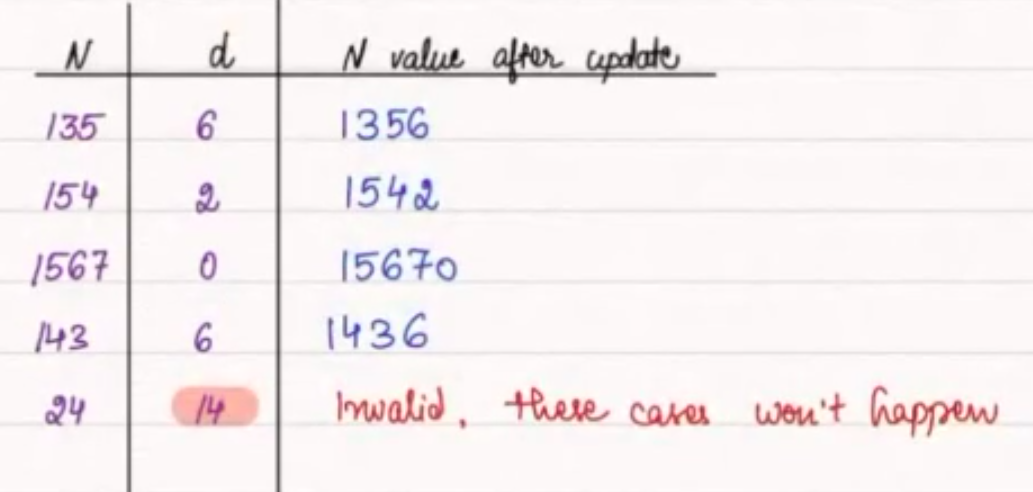 N d N value after update
135 6 1356
154 2 1542
1567 0 15670
143 6 1436
24 14 Invalid, these cases won't happen